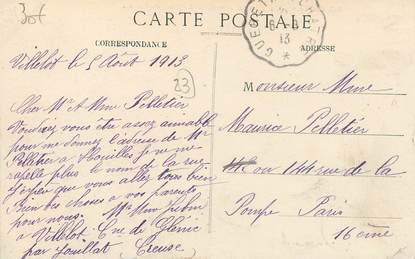 30f
CARTE POSTALE
CORRESPONDANCE
ADRESSE
Villelot le 5 Août 1913
23
Cher Mr et Mme Pelletier
Voudriez vous être assez aimable
pour me donner l'adresse de Mr
Pelletier à Houilles je ne me
rapelle plus le nom de la rue
J'espère que vous allez tous bien
Bien des choses a vos parents
pour nous.
Mr Mme
a Villelot Cne de Glénic
par Jouillat Creuse
Monsieur Mme
Maurice Pelletier
ou 144 rue de la
Pompe Paris
16ème